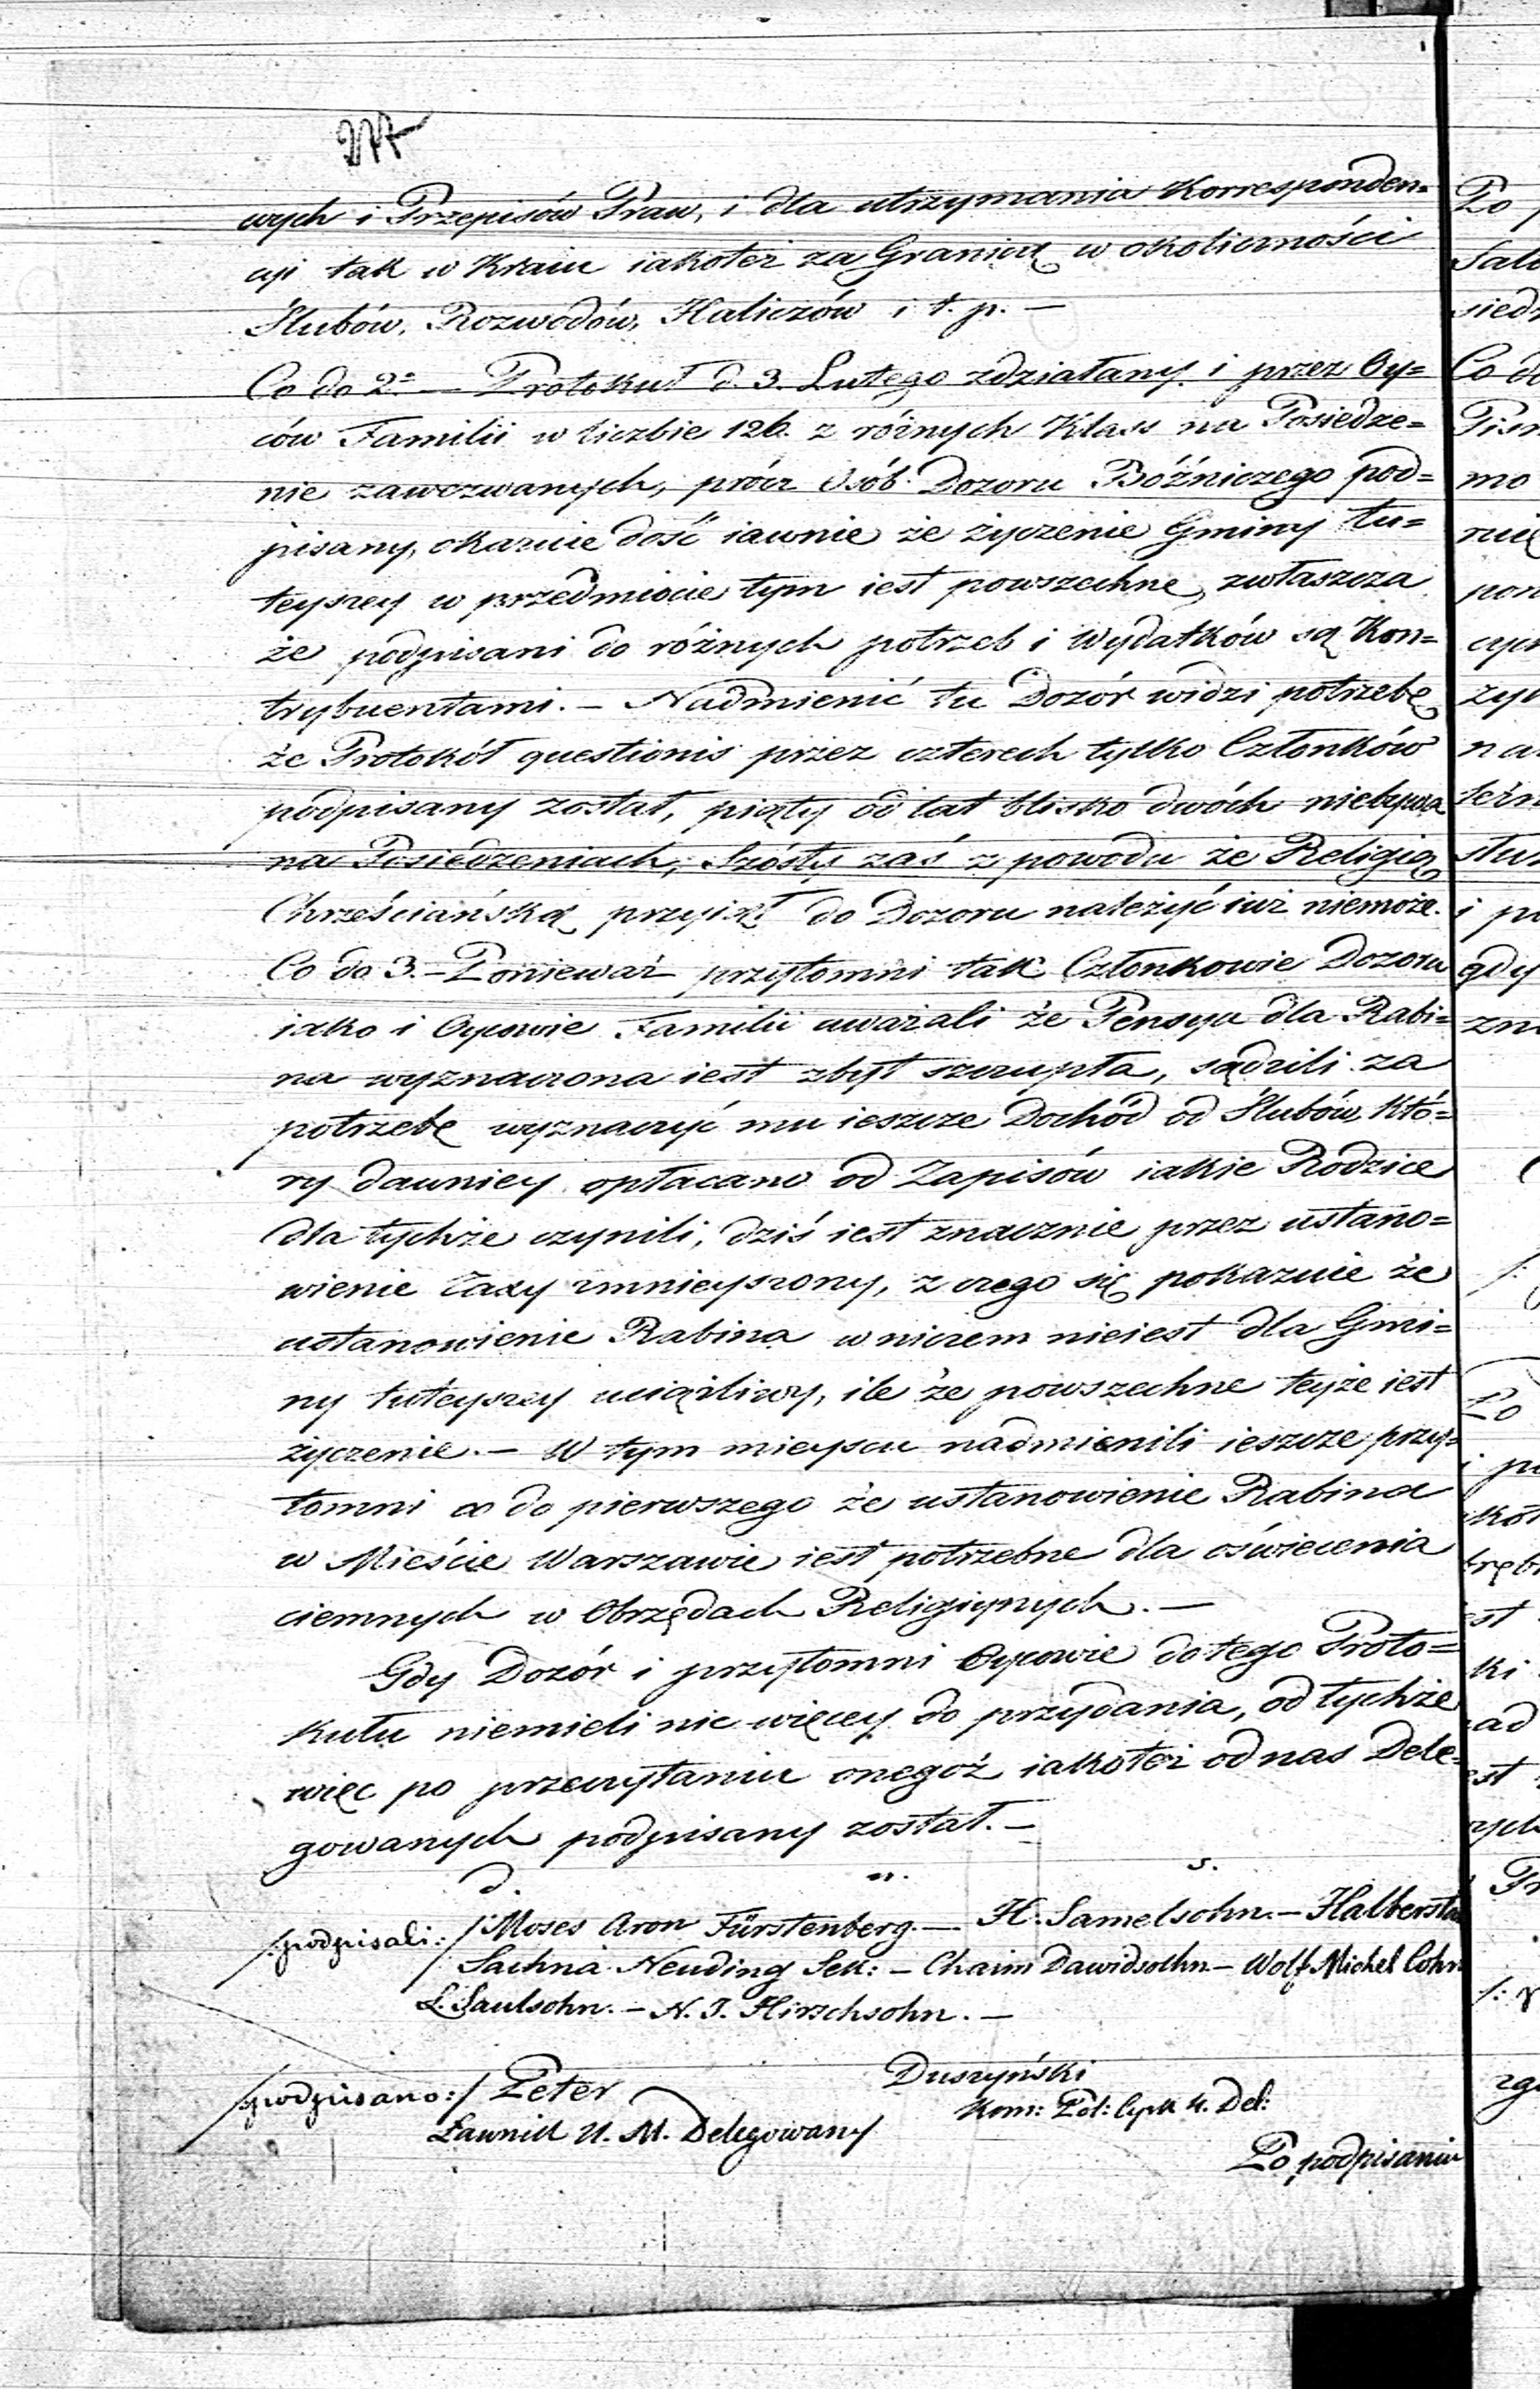 277
wych i Przepisów Praw, i dla utrzymania Korresponden=
cyi tak w Kraiu iakoteż za Granicą w okoliczności
Ślubów, Rozwodów, Haliczów i t. p. —
Co do 2º — Protokuł d. 3. Lutego zdziałany i przez Oy=
ców Familii w liczbie 126. z różnych Klass na Posiedze=
nie zawezwanych, prócz Osób Dozoru Bóźniczego pod=
pisany, okazuie dość iawnie że życzenie Gminy tu=
teyszey w przedmiocie tym iest powszechne, zwłaszcza
że podpisani do różnych potrzeb i Wydatków są Kon=
trybuentami. — Nadmienić tu Dozór widzi potrzebę
że Protokół questionis przez czterech tylko Członków
podpisany został, piąty od lat blisko dwóch niebywa
na Posiedzeniach, Szósty zaś z powodu że Religią
Chrześciańską przyiął do Dozoru należyć iuż niemoże.
Co do 3. — Ponieważ przytomni tak Członkowie Dozoru
iako i Oycowie Familii uważali że Pensya dla Rabi=
na wyznaczona iest zbyt szczupła, sądzili za
potrzebę wyznaczyć mu ieszcze Dochód od Ślubów, Któ=
ry dawniey opłacano od Zapisów iakie Rodzice
dla tychże czynili, dziś iest znacznie przez ustano=
wienie Taxy zmnieyszony, z czego się pokazuie że
ustanowienie Rabina w niczem nieiest dla Gmi=
ny tuteyszey uciążliwy, ile że powszechne teyże iest
życzenie. — W tym mieyscu nadmienili ieszcze przy=
tomni co do pierwszego że ustanowienie Rabina
w Mieście Warszawie iest potrzebne dla oświecenia
ciemnych w Obrzędach Religiynych. —
Gdy Dozór i przytomni Oycowie do tego Proto=
kułu niemieli nic więcey do przydania, od tychże
więc po przeczytaniu onegoż iakoteż od nas Dele=
gowanych podpisany został. —
d. n. s.
/:podpisali:/ Moses Aron Fürstenberg. — H. Samelsohn. — Halbersta
Sachna Neuding Sek: — Chaim Dawidsohn — Wolf Michel Cohn
L. Saulsohn. — N. J. Hirschsohn. —
/:podpisano:/ Peter Duszyński
Ławnik U. M. Delegowany Kom: Pol: Cyrk 4. Del:
Po podpisaniu